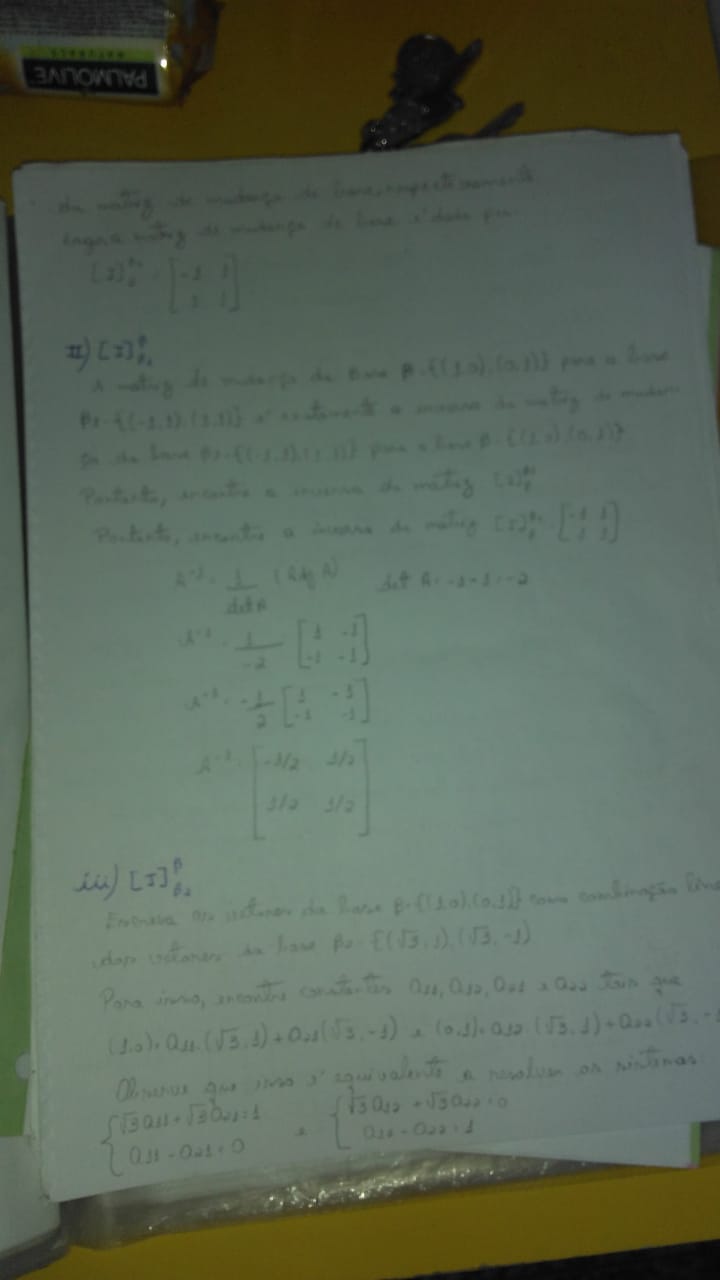 PALMOLIVE
NATURALS
da matriz de mudança de base, respectivamente
Logo, a matriz de mudança de base é dada por
[I] = [-1 1
1 1]
II) [I]
A matriz de mudança da base β = {(1,0),(0,1)} para a base
β1 = {(-1,1),(1,1)} é exatamente a inversa da matriz de mudan-
ça da base β1 = {(-1,1),(1,1)} para a base β = {(1,0),(0,1)}
Portanto, encontre a inversa da matriz [I]
Portanto, encontre a inversa da matriz [I] = [-1 1
1 1]
A⁻¹ = 1/det A (Adj A) det A = -1-1 = -2
A⁻¹ = 1/-2 [1 -1
-1 -1]
A⁻¹ = -1/2 [1 -1
-1 -1]
A⁻¹ = [-1/2 1/2
1/2 1/2]
iii) [I]β β2
Escreva os vetores da base β = {(1,0),(0,1)} como combinação
dos vetores da base β2 = {(√3,1),(√3,-1)
Para isso, encontre constantes a11, a12, a21 e a22 tais que
(1,0) = a11.(√3,1) + a21(√3,-1) e (0,1) = a12 (√3,1) + a22 (√3,
Observe que isso é equivalente a resolver os sistemas
{√3a11 + √3a21 = 1 e {√3a12 + √3a22 = 0
a11 - a21 = 0 a12 - a22 = 1